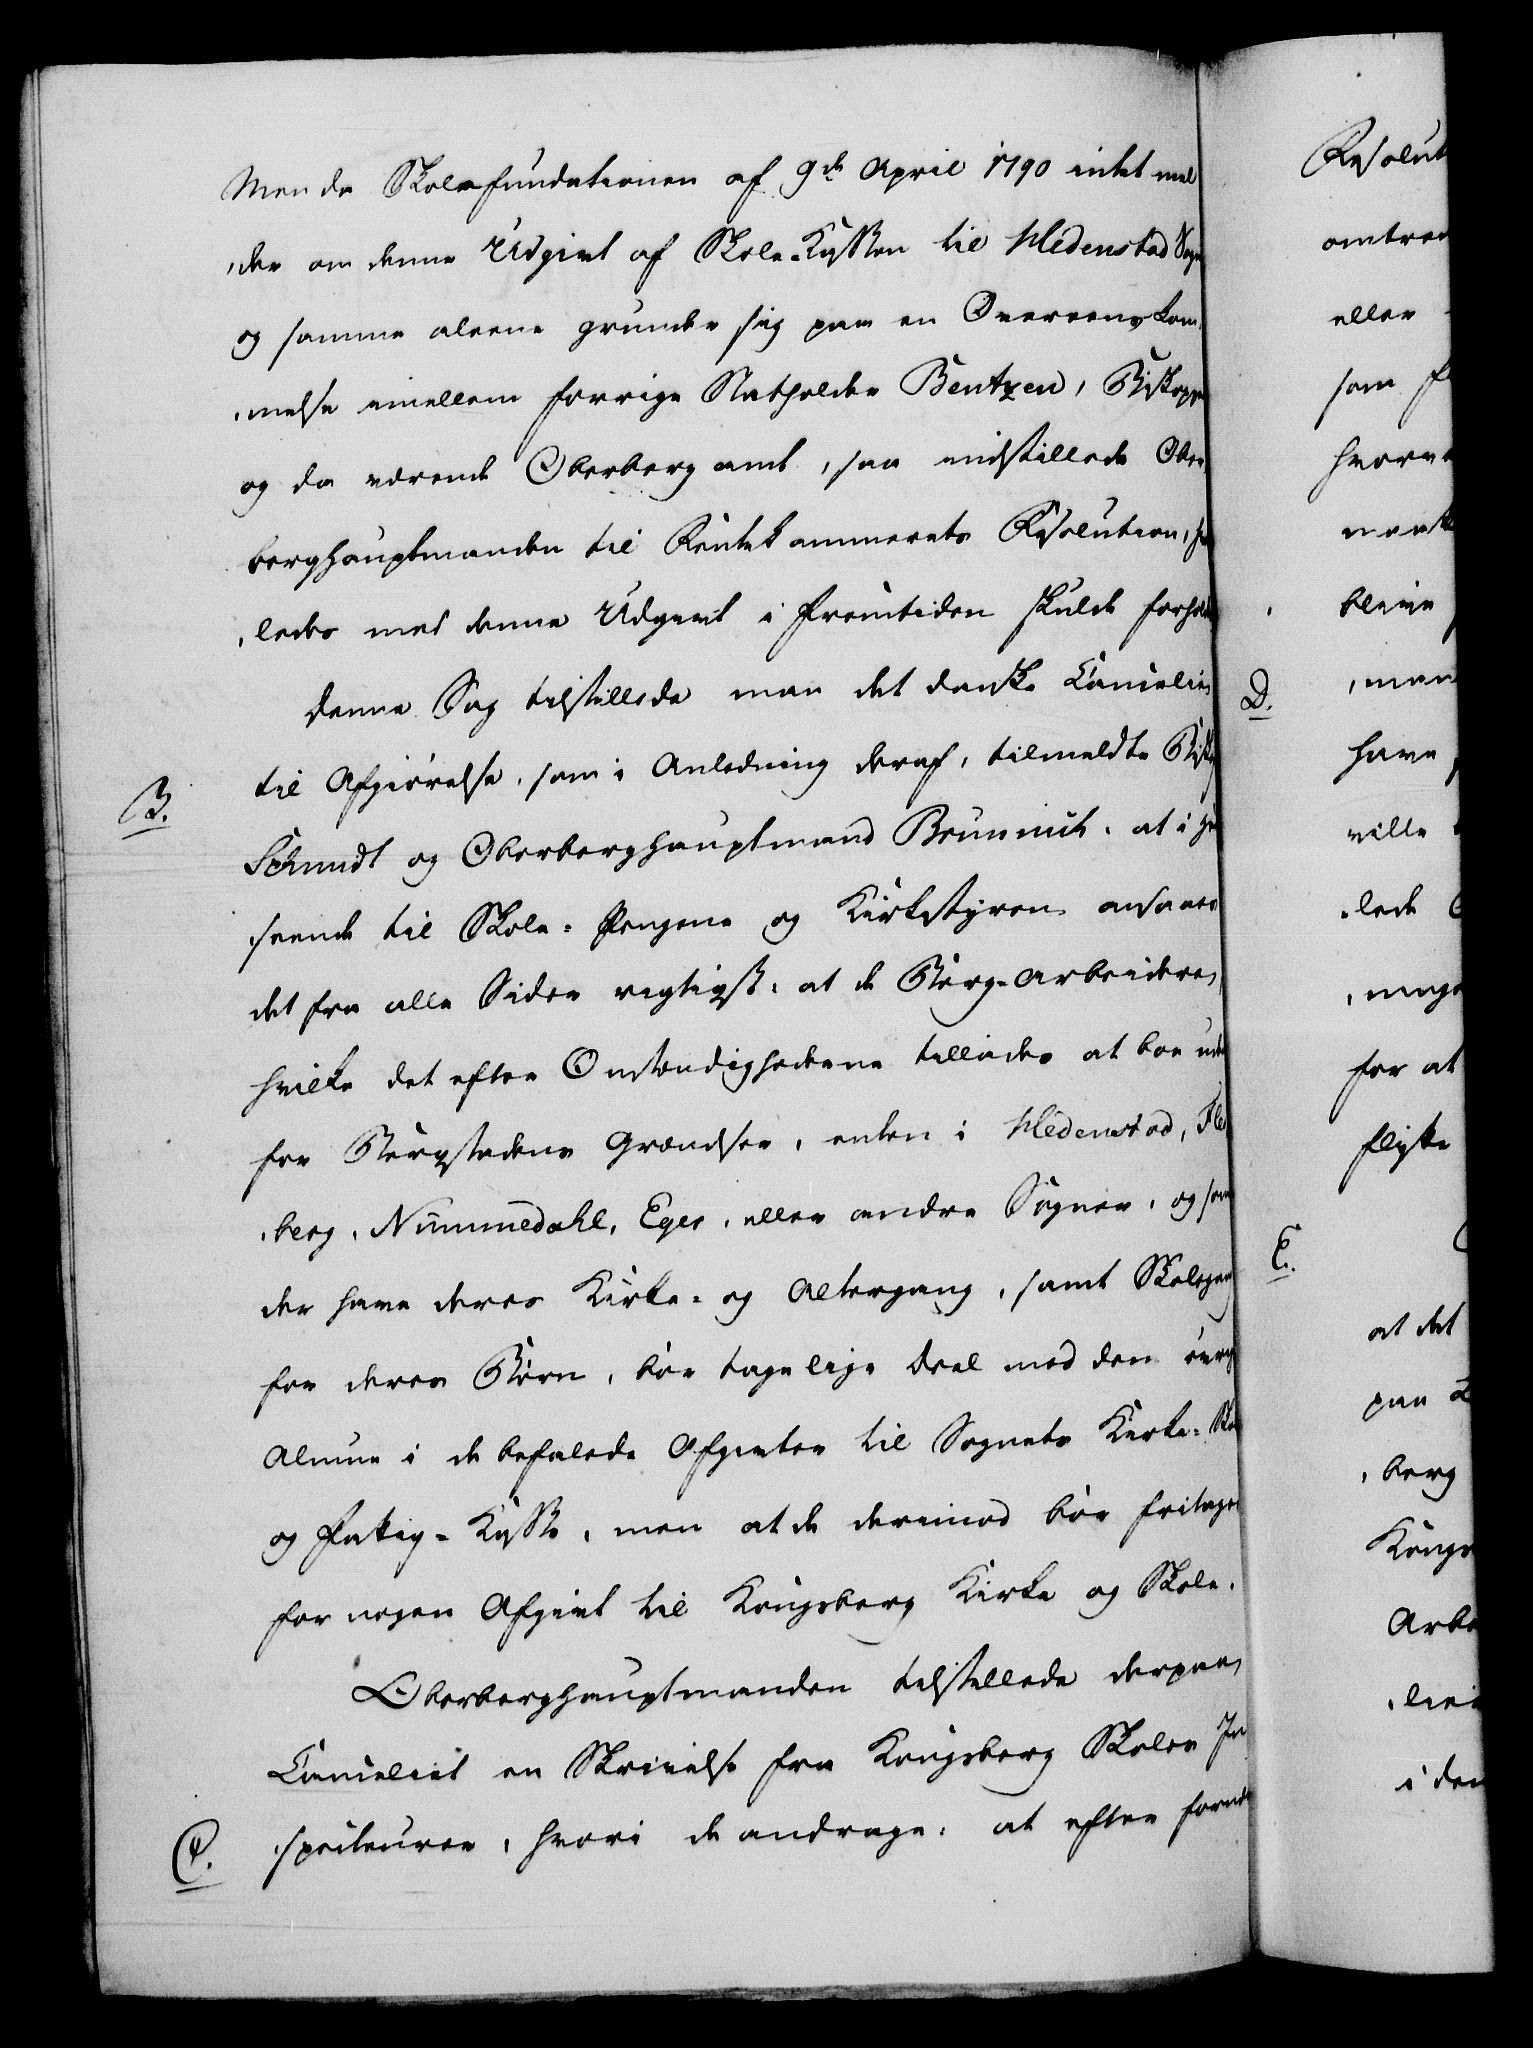 Men da Skolefundationen af 9de April 1790 intet mel
,der om denne Udgivt af Skole-Kassen til Hedenstad Sogn
og samme aleene grunder sig paa en Overeenskom,
,melse imellem forrige Statholder Bentzen, Biskoppen
og da værende Oberbergamt, saa indstillede Ober,
berghauptmanden til Rentekammerets Resolution, hvor
,ledes med denne Udgivt i Fremtiden skulde forholdes
Denne Sag tilstillede man det danske Cancelie,
B.
til Afgiørelse, som i Anledning deraf, tilmeldte Biskop
Schmidt og Oberberghauptmand Brünnich, at i Hen
,seende til Skole-Pengene og Kirkestyren ansaaes
det fra alle Sider rigtigst, at de Berg-Arbeidere,
hvilke det efter Omstændighederne tillades at boe uden
for Bergstadens Grændser, enten i Hedenstad, Fles
,berg, Nummedahl, Eger, eller andre Sogner, og som
der have deres Kirke- og Altergang, samt Skolegang
for deres Børn, bør tage lige Deel med den øvrige
Almue i de befalede Afgivter til Sognets Kirke- Skole
og Fattig-Kasse, men at de derimod bør fritages
for nogen Afgivt til Kongsberg Kirke og Skole.
Oberberghauptmanden tilstillede derpaa,
Canceliet en Skrivelse fra Kongsberg Skoles In
C.
,specteurer, hvori de andrage, at efter forend
Resolut
omtren
eller
som f
hvorve
mærke
blive
D.
,man
have
ville
,lede
,ninge
for at
flytte
E.
at det
paa
,berg
Kongs
Arbe
,livi
i den